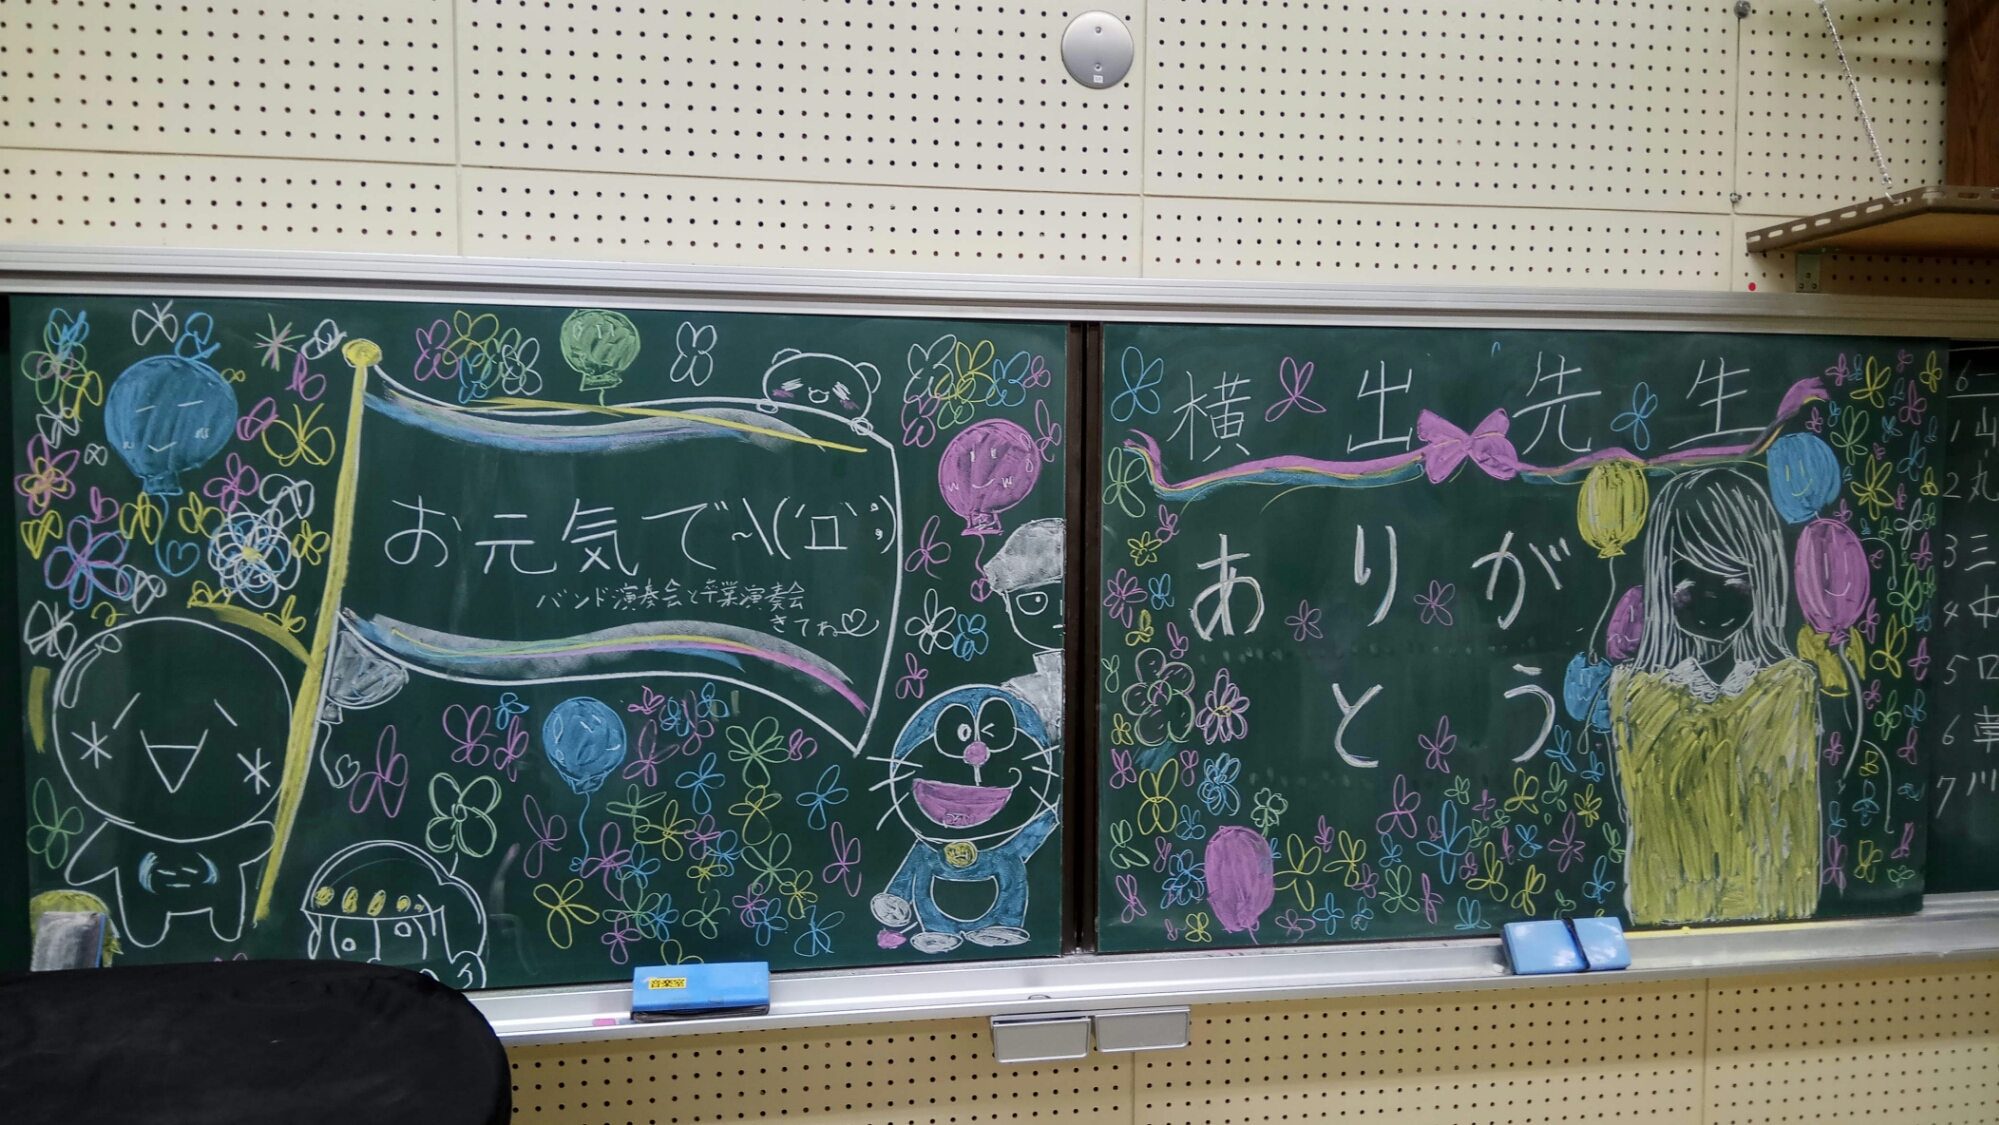 お元気で~\(´ロ`;)
バンド演奏会と卒業演奏会
きてね♡
音楽室
横出先生
ありが
とう
6一
1山
2丸
3三
4中
5口
6草
7川